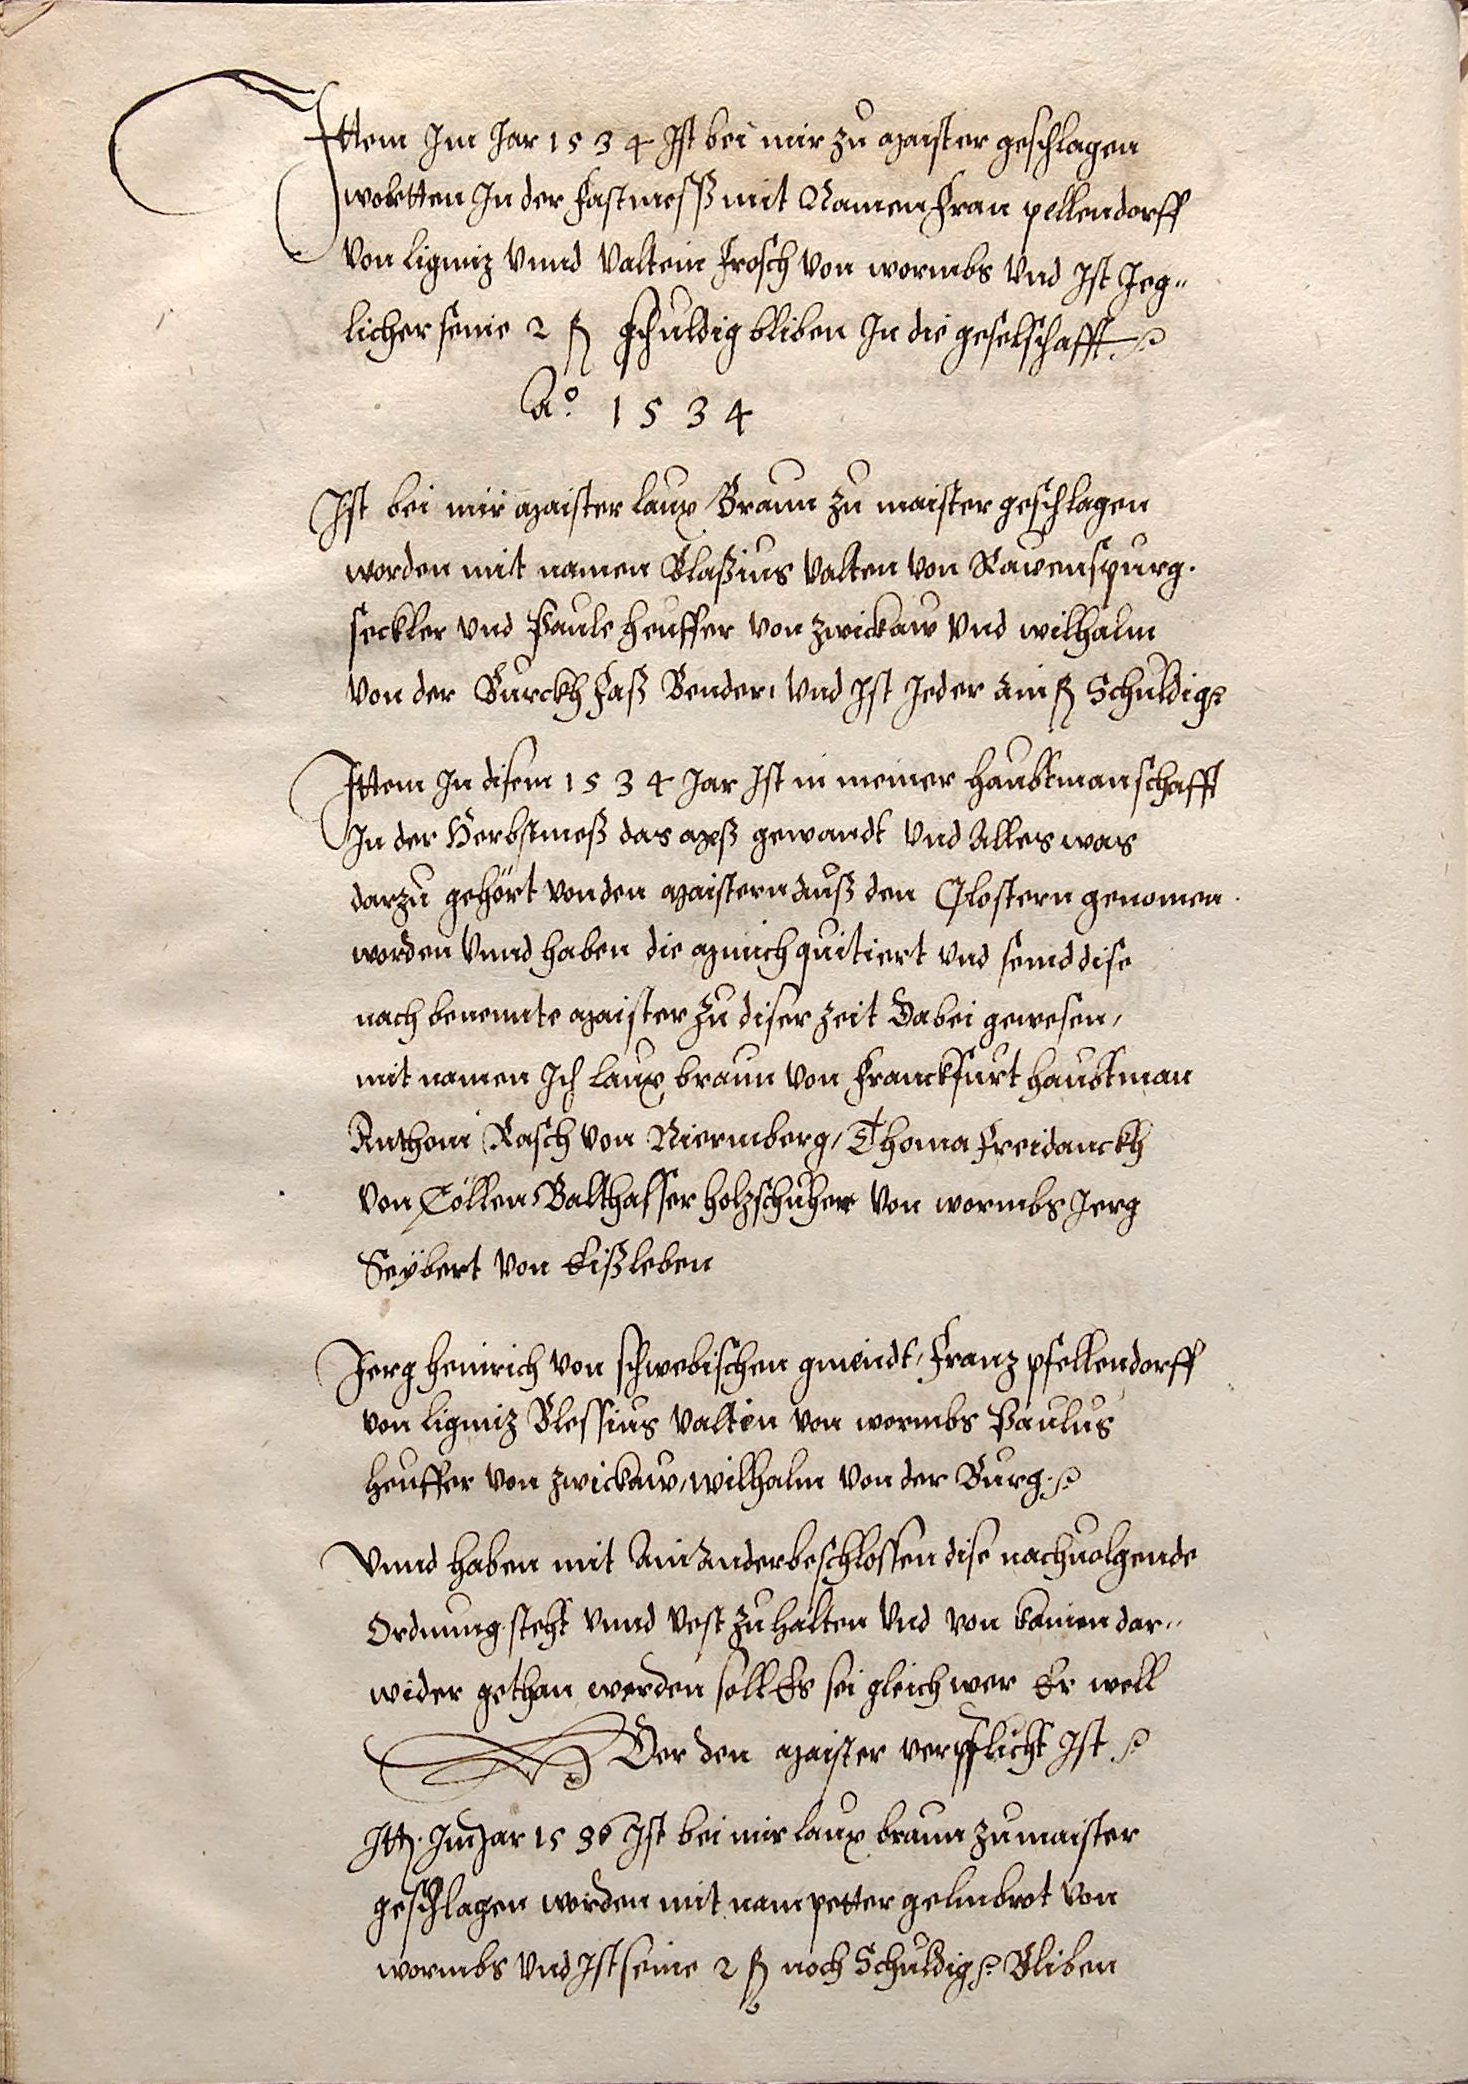 Ittem Im Jar 1534 Ist bei mir zu maister geschlagen
wortten In der Fastmesß mit Namen Fran pellendorff
von ligniz vnnd valtein Frosch von wormbs vnd Ist Jeg„
licher seine 2 fl schuldig bliben In die geselschafft
Ao. 1534
Ist bei mir maister laux Braun zu maister geschlagen
worden mit namen Blaßius valten von Rauenspurg.
seckler vnd Paule heuffer von zwickaw vnd wilhalm
von der Burckh Faß Bender, vnd Ist Jeder ain fl Schuldig
Ittem In disem 1534 Jar Ist in meiner haubtmanschafft
In der Herbstmeß das meß gewandt vnd Alles was
darzu gehört von den maistern auß den Clostern genomen
worden vnnd haben die münch quitiert vnd seind dise
nach benennte maister zu diser zeit Dabei gewesen,
mit namen Ich laux braun von Franckfurt haubtman
Anthoni Rasch von Niermberg, Thoma Freidanckh
von Cöllen Balthasser holzschuher von wormbs Jerg
Seybert von Eißleben
Jerg heinrich von schwebischen gmeindt, Franz pfellendorff
von ligniz Blessius valtin von wormbs Paulus
heuffer von zwickaw, wilhalm von der Burg
Vnnd haben mit Ainander beschlossen dise nachuolgende
Ordnung steht vnnd vest zu halten vnd von kainen dar„
wider gethan werden soll Es sei gleich wer Er well
Der den maister verpflicht Ist
Itt. Im Jar 1536 Ist bei mir laux braun zu maister
geschlagen worden mit nam petter gelmbrot von
wormbs vnd Ist seine 2 fl noch Schuldig Bliben